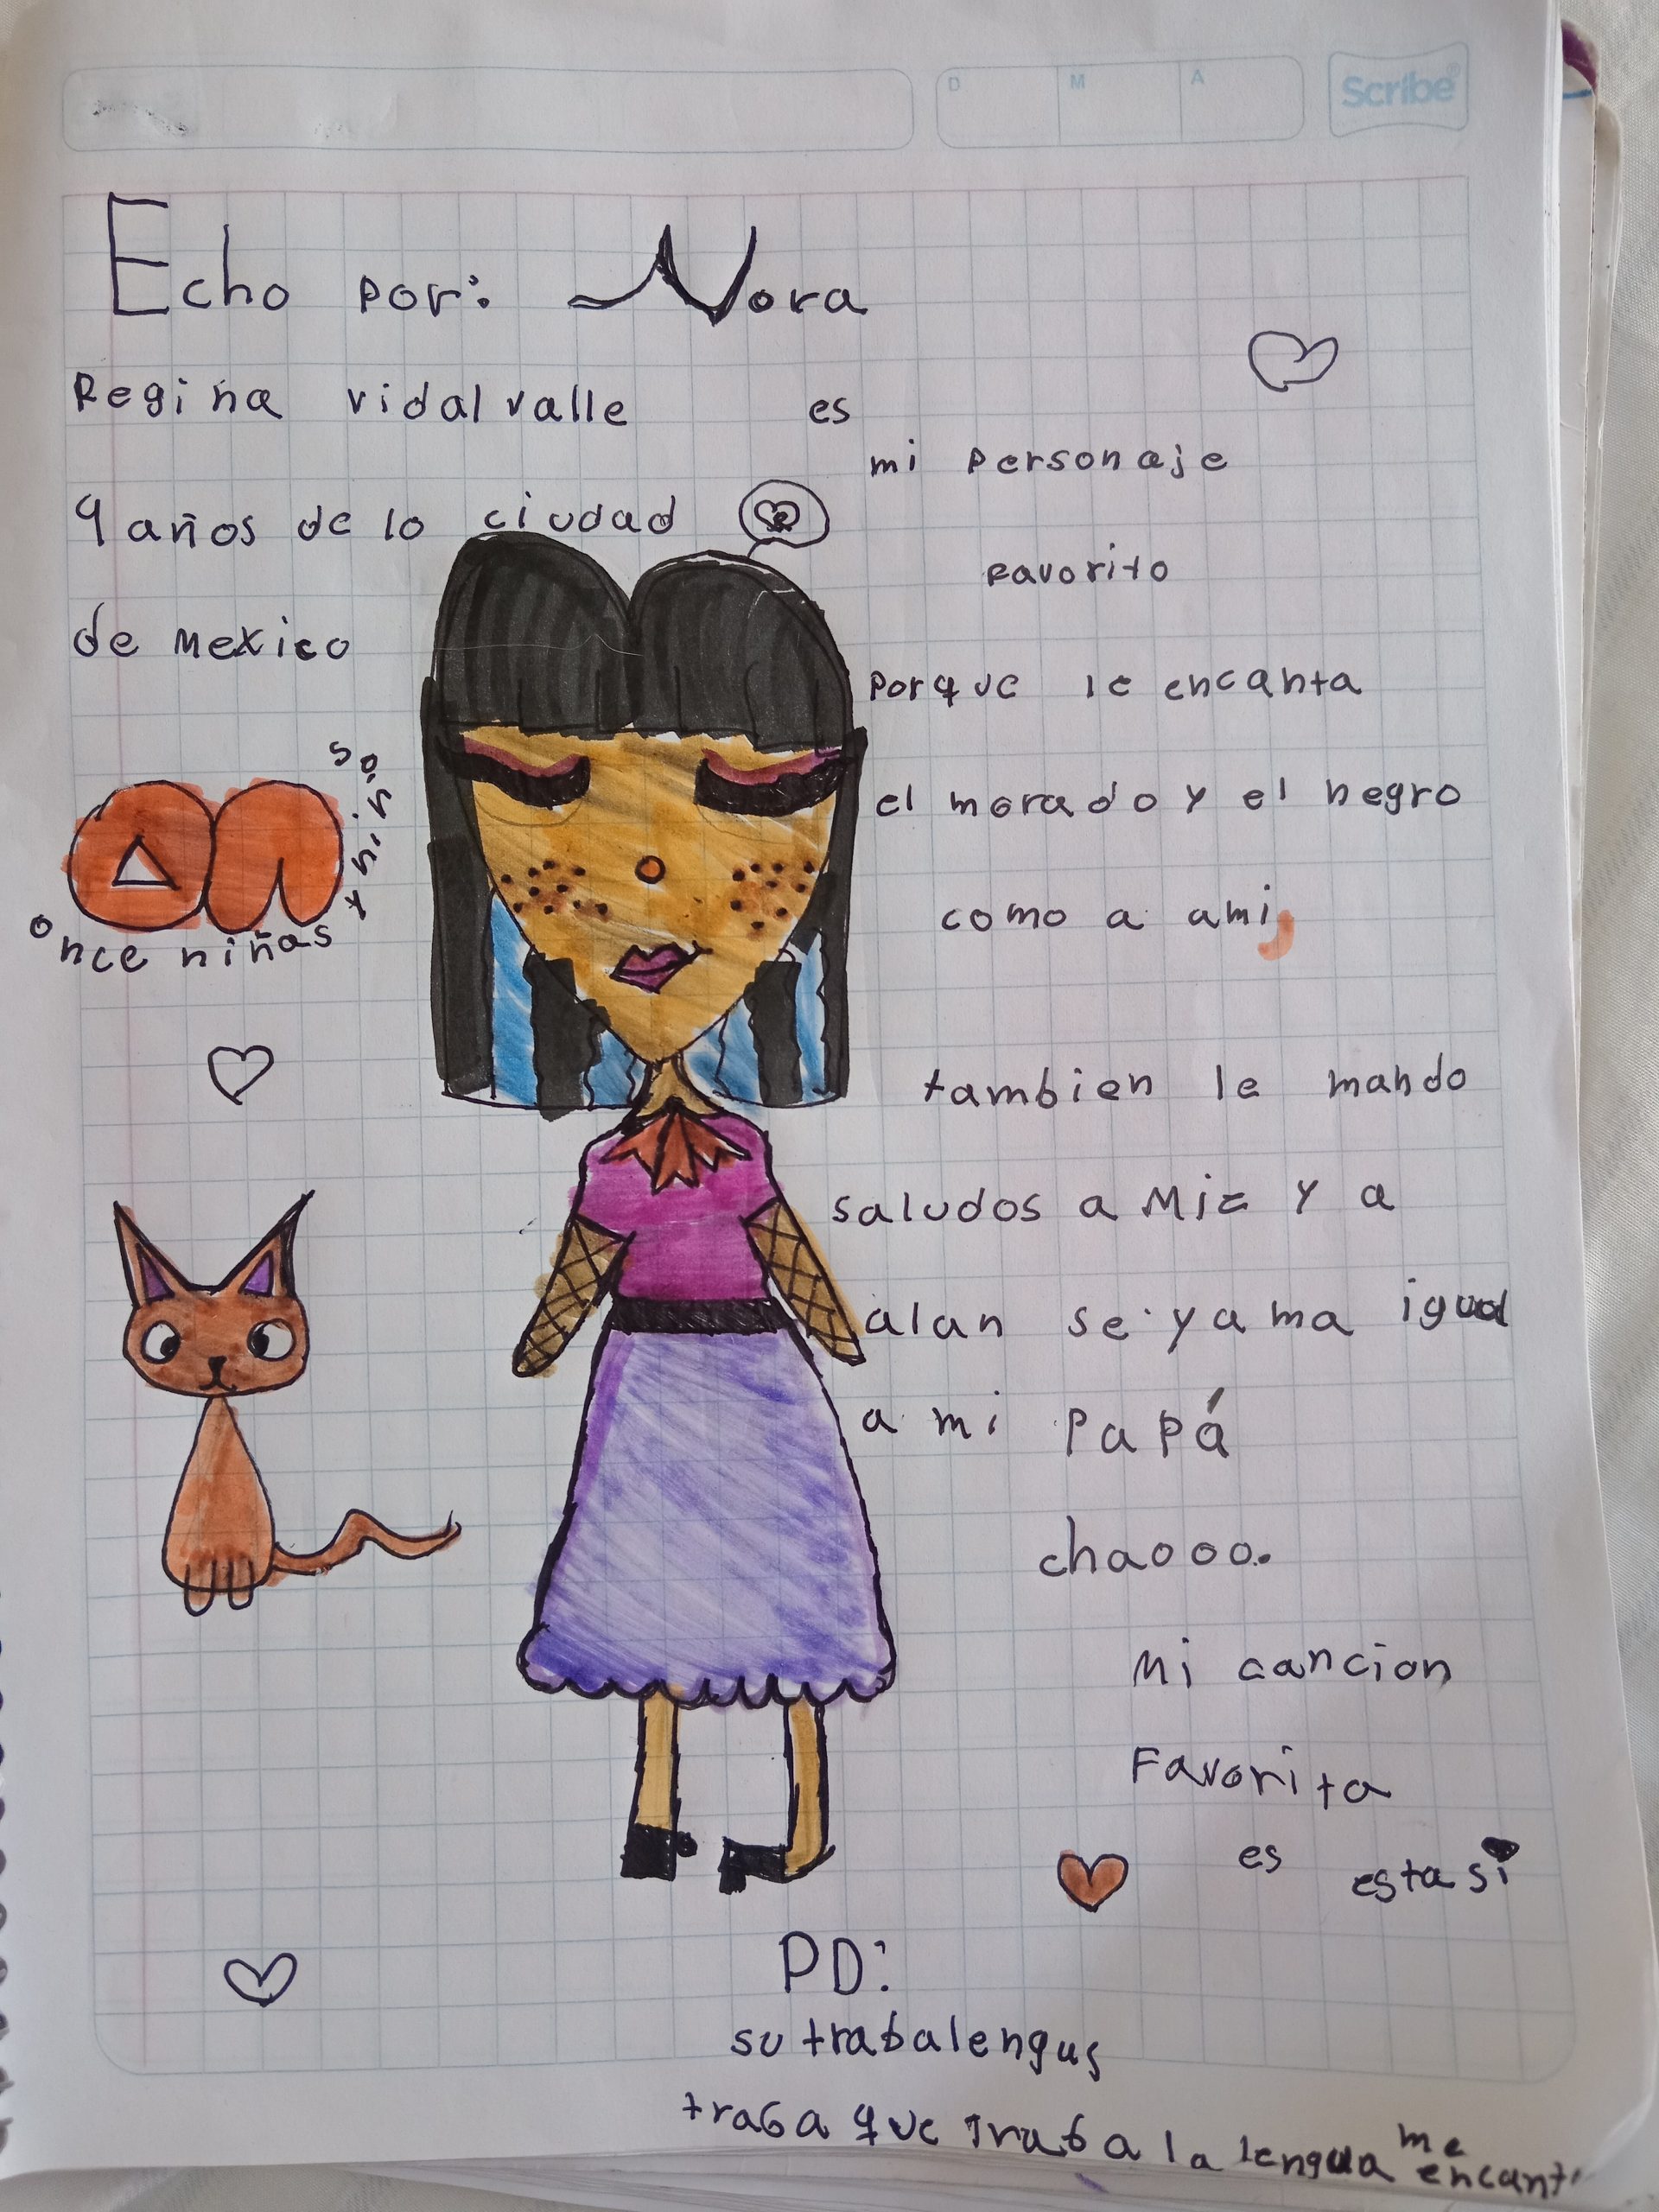 D M A Scribe
Echo por: Nora
Regina vidal valle
9 años de lo ciudad
de mexico
once niñas
y niños
es
mi personaje
Favorito
Porque le encanta
el morado y el negro
como a ami,
tambien le mando
saludos a Mic y a
alan se yama igual
a mi Papá
chaooo.
Mi cancion
Favorita
es esta si
PD:
su trabalengus
traba que traba la lengua me
encant